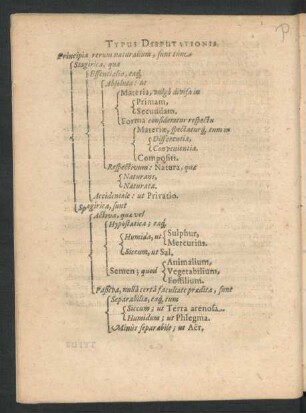 TYPUS DISPUTATIONIS.
Principia rerum naturalium, sunt tum
Stagirica, quæ
Essentialia, eaq́
Absoluta: ut
Materia, vulgò divisa in
Primam,
Secundam,
Forma consideretur respectu
Materiæ, spectaturq́, tum in
Differentia,
Convenientia.
Compositi.
Respectivum: Natura, quæ
Naturans,
Naturata.
Accidentale: ut Privatio.
Spagirica, sunt
Activa, quæ vel
Hypostatica; eaq́,
Humida, ut
Sulphur,
Mercurius.
Siccum, ut Sal.
Semen; quod
Animalium,
Vegetabilium,
Fossilium.
Passiva, nullâ certâ facultate prædita, sunt
Separabilia, eaq́, tum
Siccum; ut Terra arenosa.
Humidum; ut Phlegma.
Minùs separabile; ut Aër.